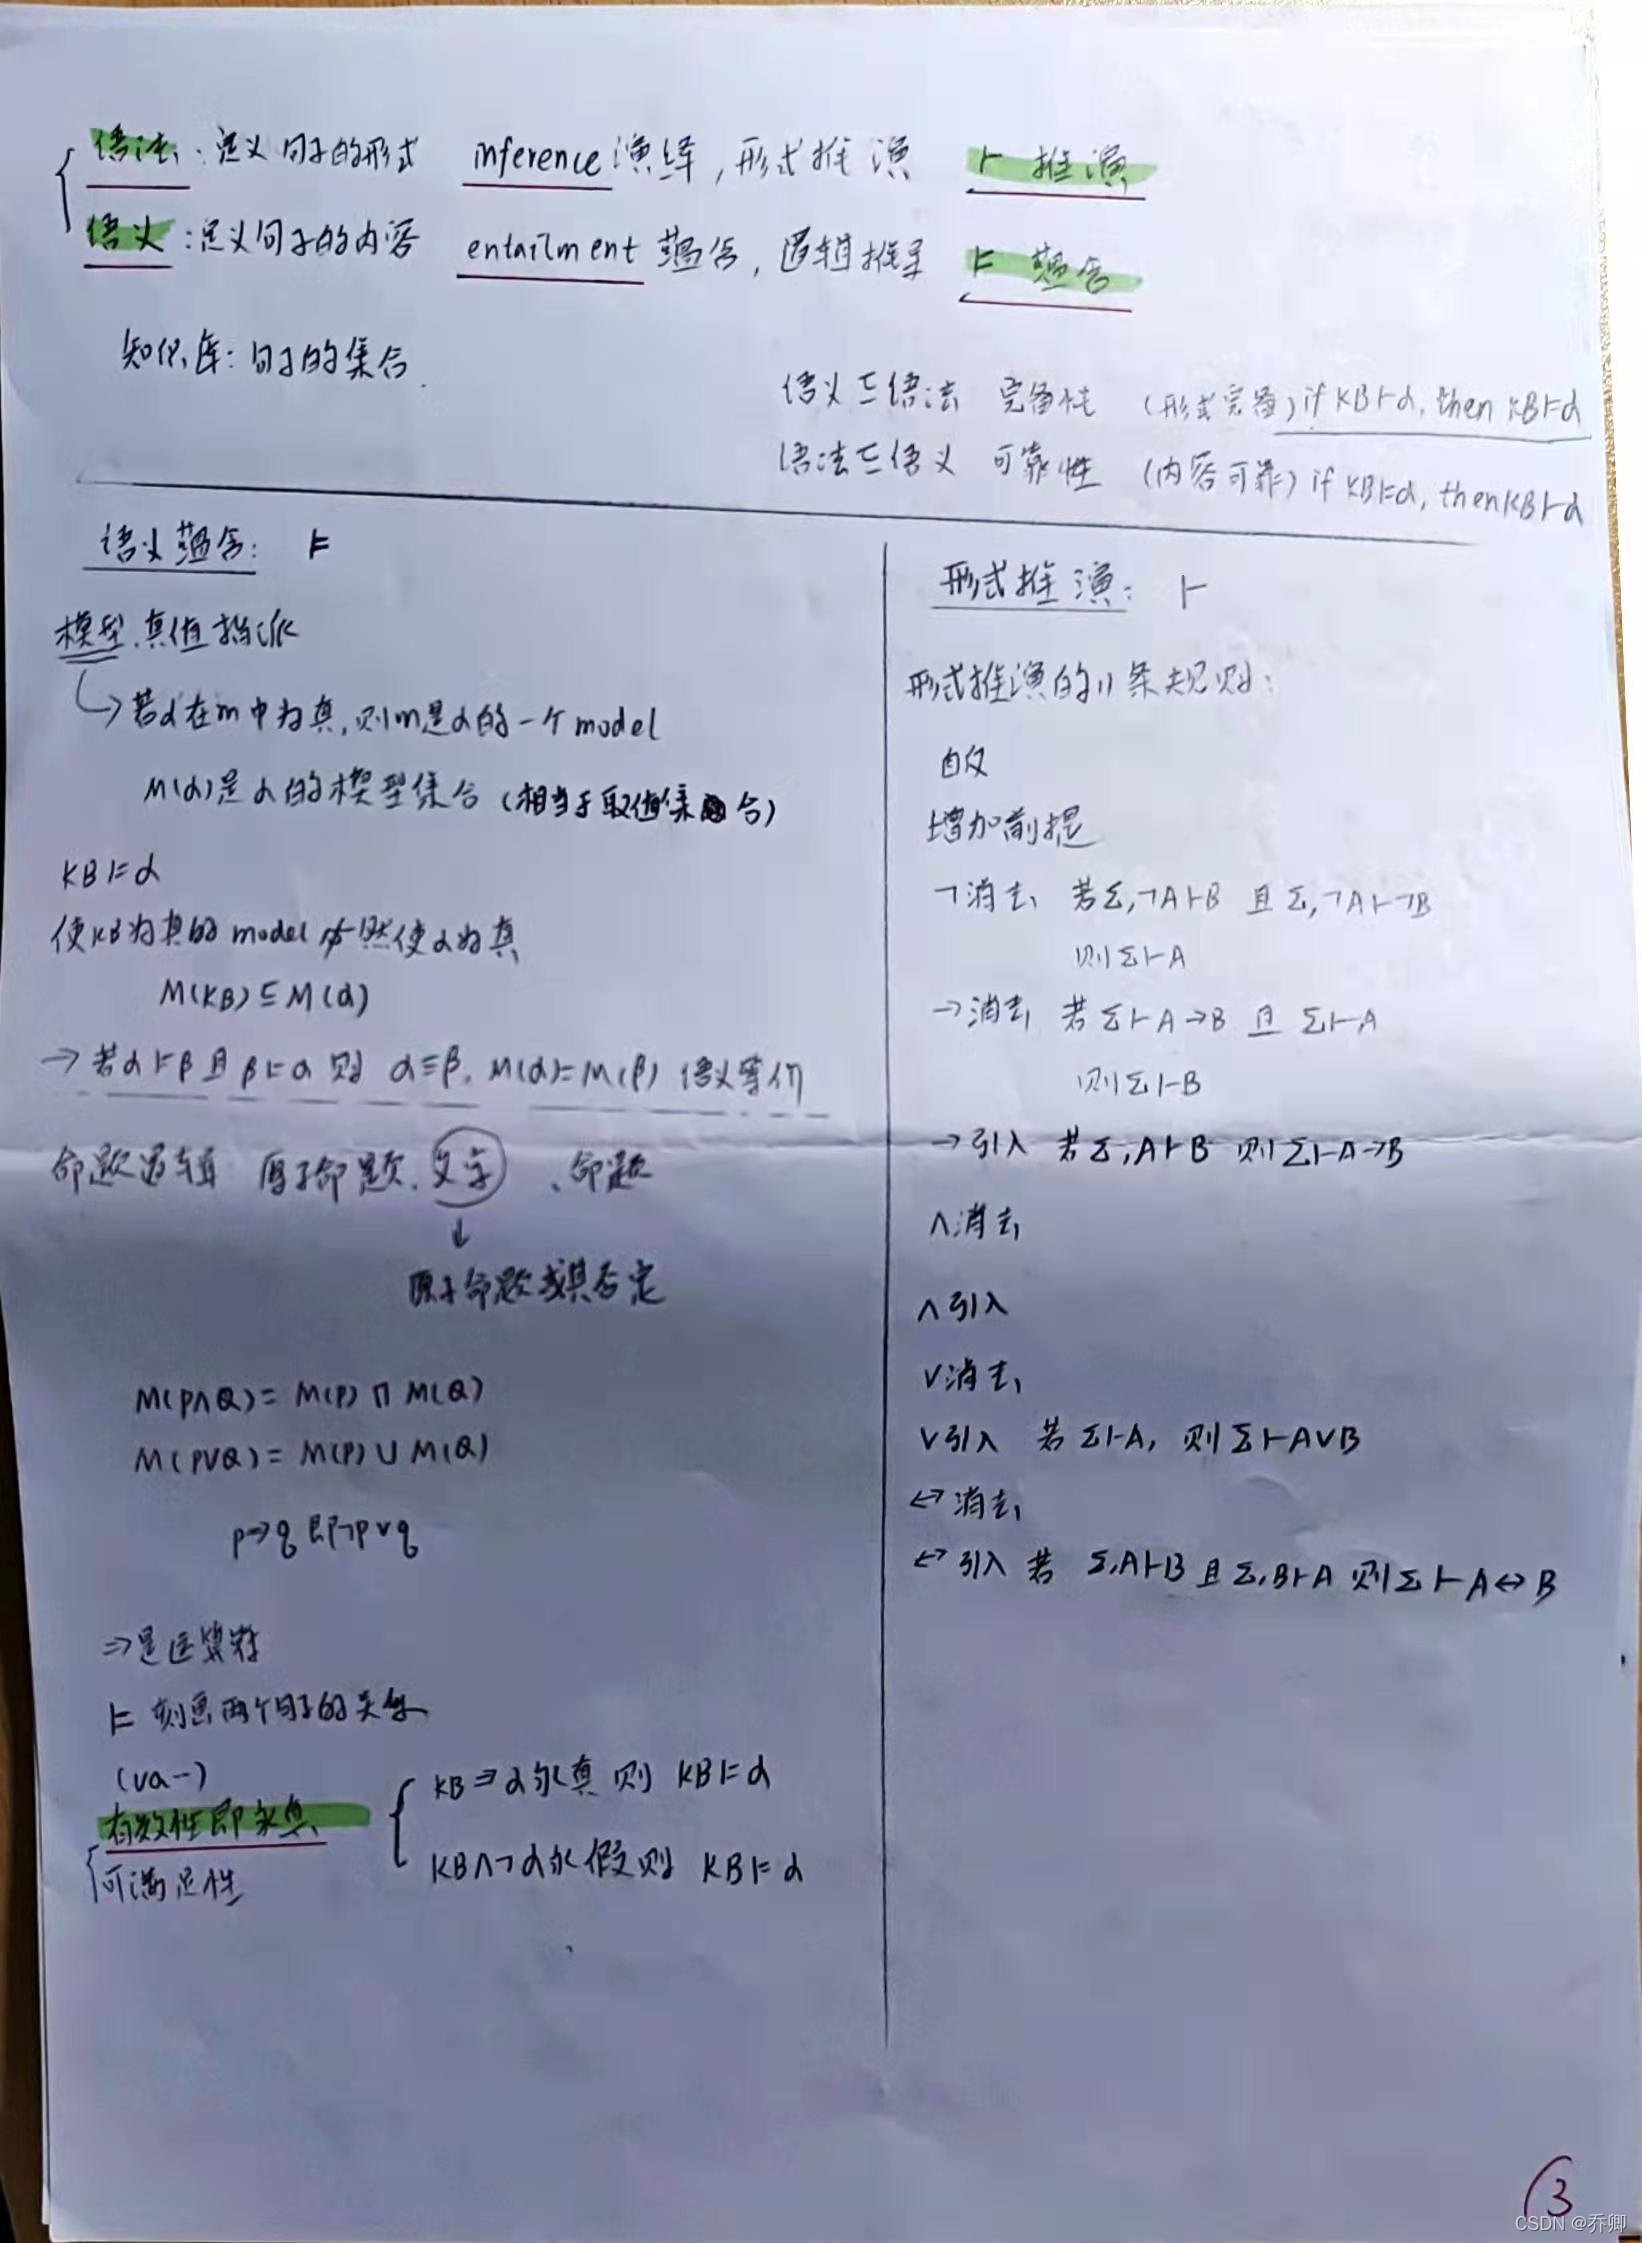 语法：定义句子的形式 inference 演绎，形式推演 ⊢ 推演
语义：定义句子的内容 entailment 蕴含，逻辑推导 ⊨ 蕴含
知识库：句子的集合.
语义⊆语法 完备性 (形式完备) if KB⊢α, then KB⊨α
语法⊆语义 可靠性 (内容可靠) if KB⊨α, then KB⊢α
语义蕴含： ⊨
模型、真值指派
↳若α在m中为真,则m是α的一个model
M(α)是α的模型集合(相当于取值集合)
KB⊨α
使KB为真的model必然使α为真
M(KB)⊆M(α)
→若α⊨β且β⊨α则 α≡β, M(α)=M(β) 语义等价
命题逻辑 原子命题、文字、命题
↓
原子命题或其否定
M(P∧Q)= M(P)∩M(Q)
M(P∨Q)= M(P)∪M(Q)
p→q即¬p∨q
⇒是运算符
⊨ 刻画两个句子的关系
(va-)
有效性即永真
可满足性
KB⇒α永真则 KB⊨α
KB∧¬α永假则 KB⊨α
形式推演： ⊢
形式推演的11条规则：
自反
增加前提
¬消去 若Σ,¬A⊢B 且Σ,¬A⊢¬B
则Σ⊢A
→消去 若Σ⊢A→B 且 Σ⊢A
则Σ⊢B
→引入 若Σ,A⊢B 则Σ⊢A→B
∧消去
∧引入
∨消去
∨引入 若Σ⊢A, 则Σ⊢A∨B
↔消去
↔引入 若 Σ,A⊢B且Σ,B⊢A 则Σ⊢A↔B
3
CSDN @乔卿